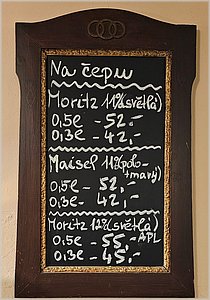 Na čepu
Moritz 11%(světlá)
0,5ℓ - 52,-
0,3ℓ - 42,-
Maisel 11%(polo-
tmavý)
0,5ℓ - 52,-
0,3ℓ - 42,-
Moritz 12%(světlá)
0,5ℓ - 55,- APL
0,3ℓ - 45,-